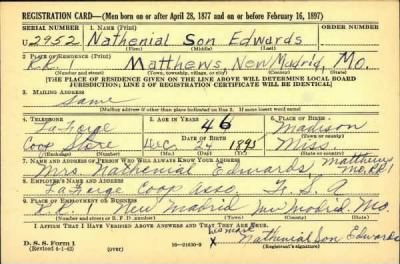 REGISTRATION CARD—(Men born on or after April 28, 1877 and on or before February 16, 1897)
SERIAL NUMBER 1. NAME (Print) ORDER NUMBER
U 2952 Nathenial Son Edwards
(First) (Middle) (Last)
2. PLACE OF RESIDENCE (Print)
R.R. 1 Matthews, New Madrid, Mo.
(Number and street) (Town, township, village, or city) (County) (State)
[THE PLACE OF RESIDENCE GIVEN ON THE LINE ABOVE WILL DETERMINE LOCAL BOARD
JURISDICTION; LINE 2 OF REGISTRATION CERTIFICATE WILL BE IDENTICAL]
3. MAILING ADDRESS
Same
[Mailing address if other than place indicated on line 2. If same insert word same]
4. TELEPHONE 5. AGE IN YEARS 6. PLACE OF BIRTH
LaForge 46 Madison
DATE OF BIRTH (Town or county)
Coop Store Dec 24 1895 Miss.
(Exchange) (Number) (Mo.) (Day) (Yr.) (State or country)
7. NAME AND ADDRESS OF PERSON WHO WILL ALWAYS KNOW YOUR ADDRESS Matthews
Mrs. Nathenial Edwards, Mo. R.R. 1
8. EMPLOYER'S NAME AND ADDRESS
LaForge Coop Asso, F. S. A
9. PLACE OF EMPLOYMENT OR BUSINESS
R.R. 1 New Madrid New Madrid Mo.
(Number and street or R. F. D. number) (Town) (County) (State)
I AFFIRM THAT I HAVE VERIFIED ABOVE ANSWERS AND THAT THEY ARE TRUE.
D. S. S. Form 1
(Revised 4-1-42) (over) 16—21630-2
his mark
X Nathenial Son Edwards
(Registrant's signature)